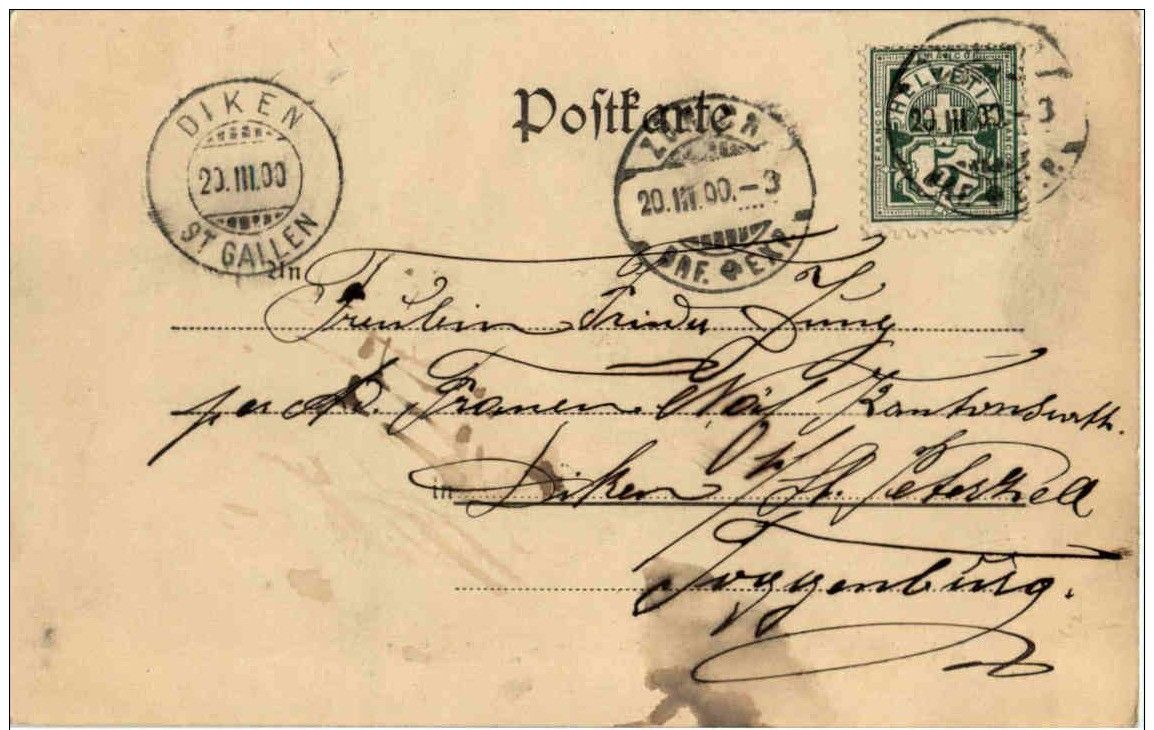 Postkarte
DIKEN
20.III.00
ST GALLEN
20.III.00.-3
BRF. EXP.
FRANCO
HELVETIA
20.III.00.-3
5
BRF.
An
Fräulein Frieda Jung
per Ad. Frauen Näf Kantonsrath.
in Diken b/ St. Peterzell
Toggenburg.